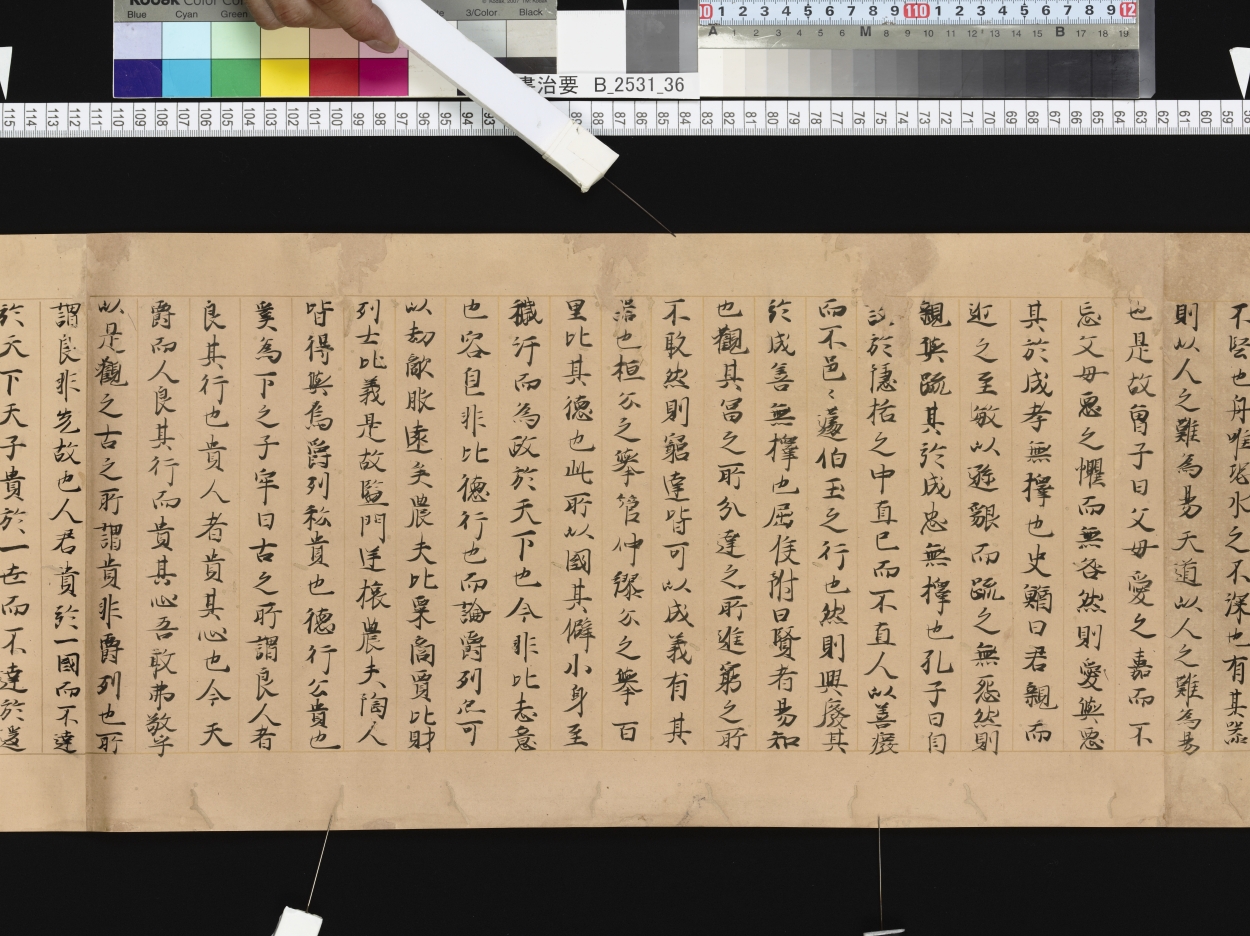 不堅也舟唯恐水之不深也有其器
則以人之難為易夫道以人之難為易
也是故曾子曰父母愛之嘉而不
忘父母惡之懼而無咎然則愛與惡
其於成孝無擇也史鰌曰君親而
近之至敏以遜貌而疏之無怨然則
親與疏其於成忠無擇也孔子曰自
於檃括之中直己而不直人以善廢
而不邑々蘧伯玉之行也然則興廢其
於成善無擇也屈侯附曰賢者易知
也觀其富之所分達之所進窮之所
不取然則窮達皆可以成義有其
器也桓公之舉管仲繆公之舉百
里比其德也此所以國其僻小身至
穢汙而為政於天下也今非比志意
也容自非比德行也而論爵列亦可
以劫敵服遠矣農夫比粟商賈比財
列士比義是故監門逆旅農夫陶人
皆得與焉爵列私貴也德行公貴也
奚為下之子牢曰古之所謂良人者
良其行也貴人者貴其心也今天
爵而人良其行而貴其心吾敢弗敬乎
以是觀之古之所謂貴非爵列也所
謂良非先故也人君貴於一國而不達
於天下天子貴於一世而不達於
書治要 B_2531_36